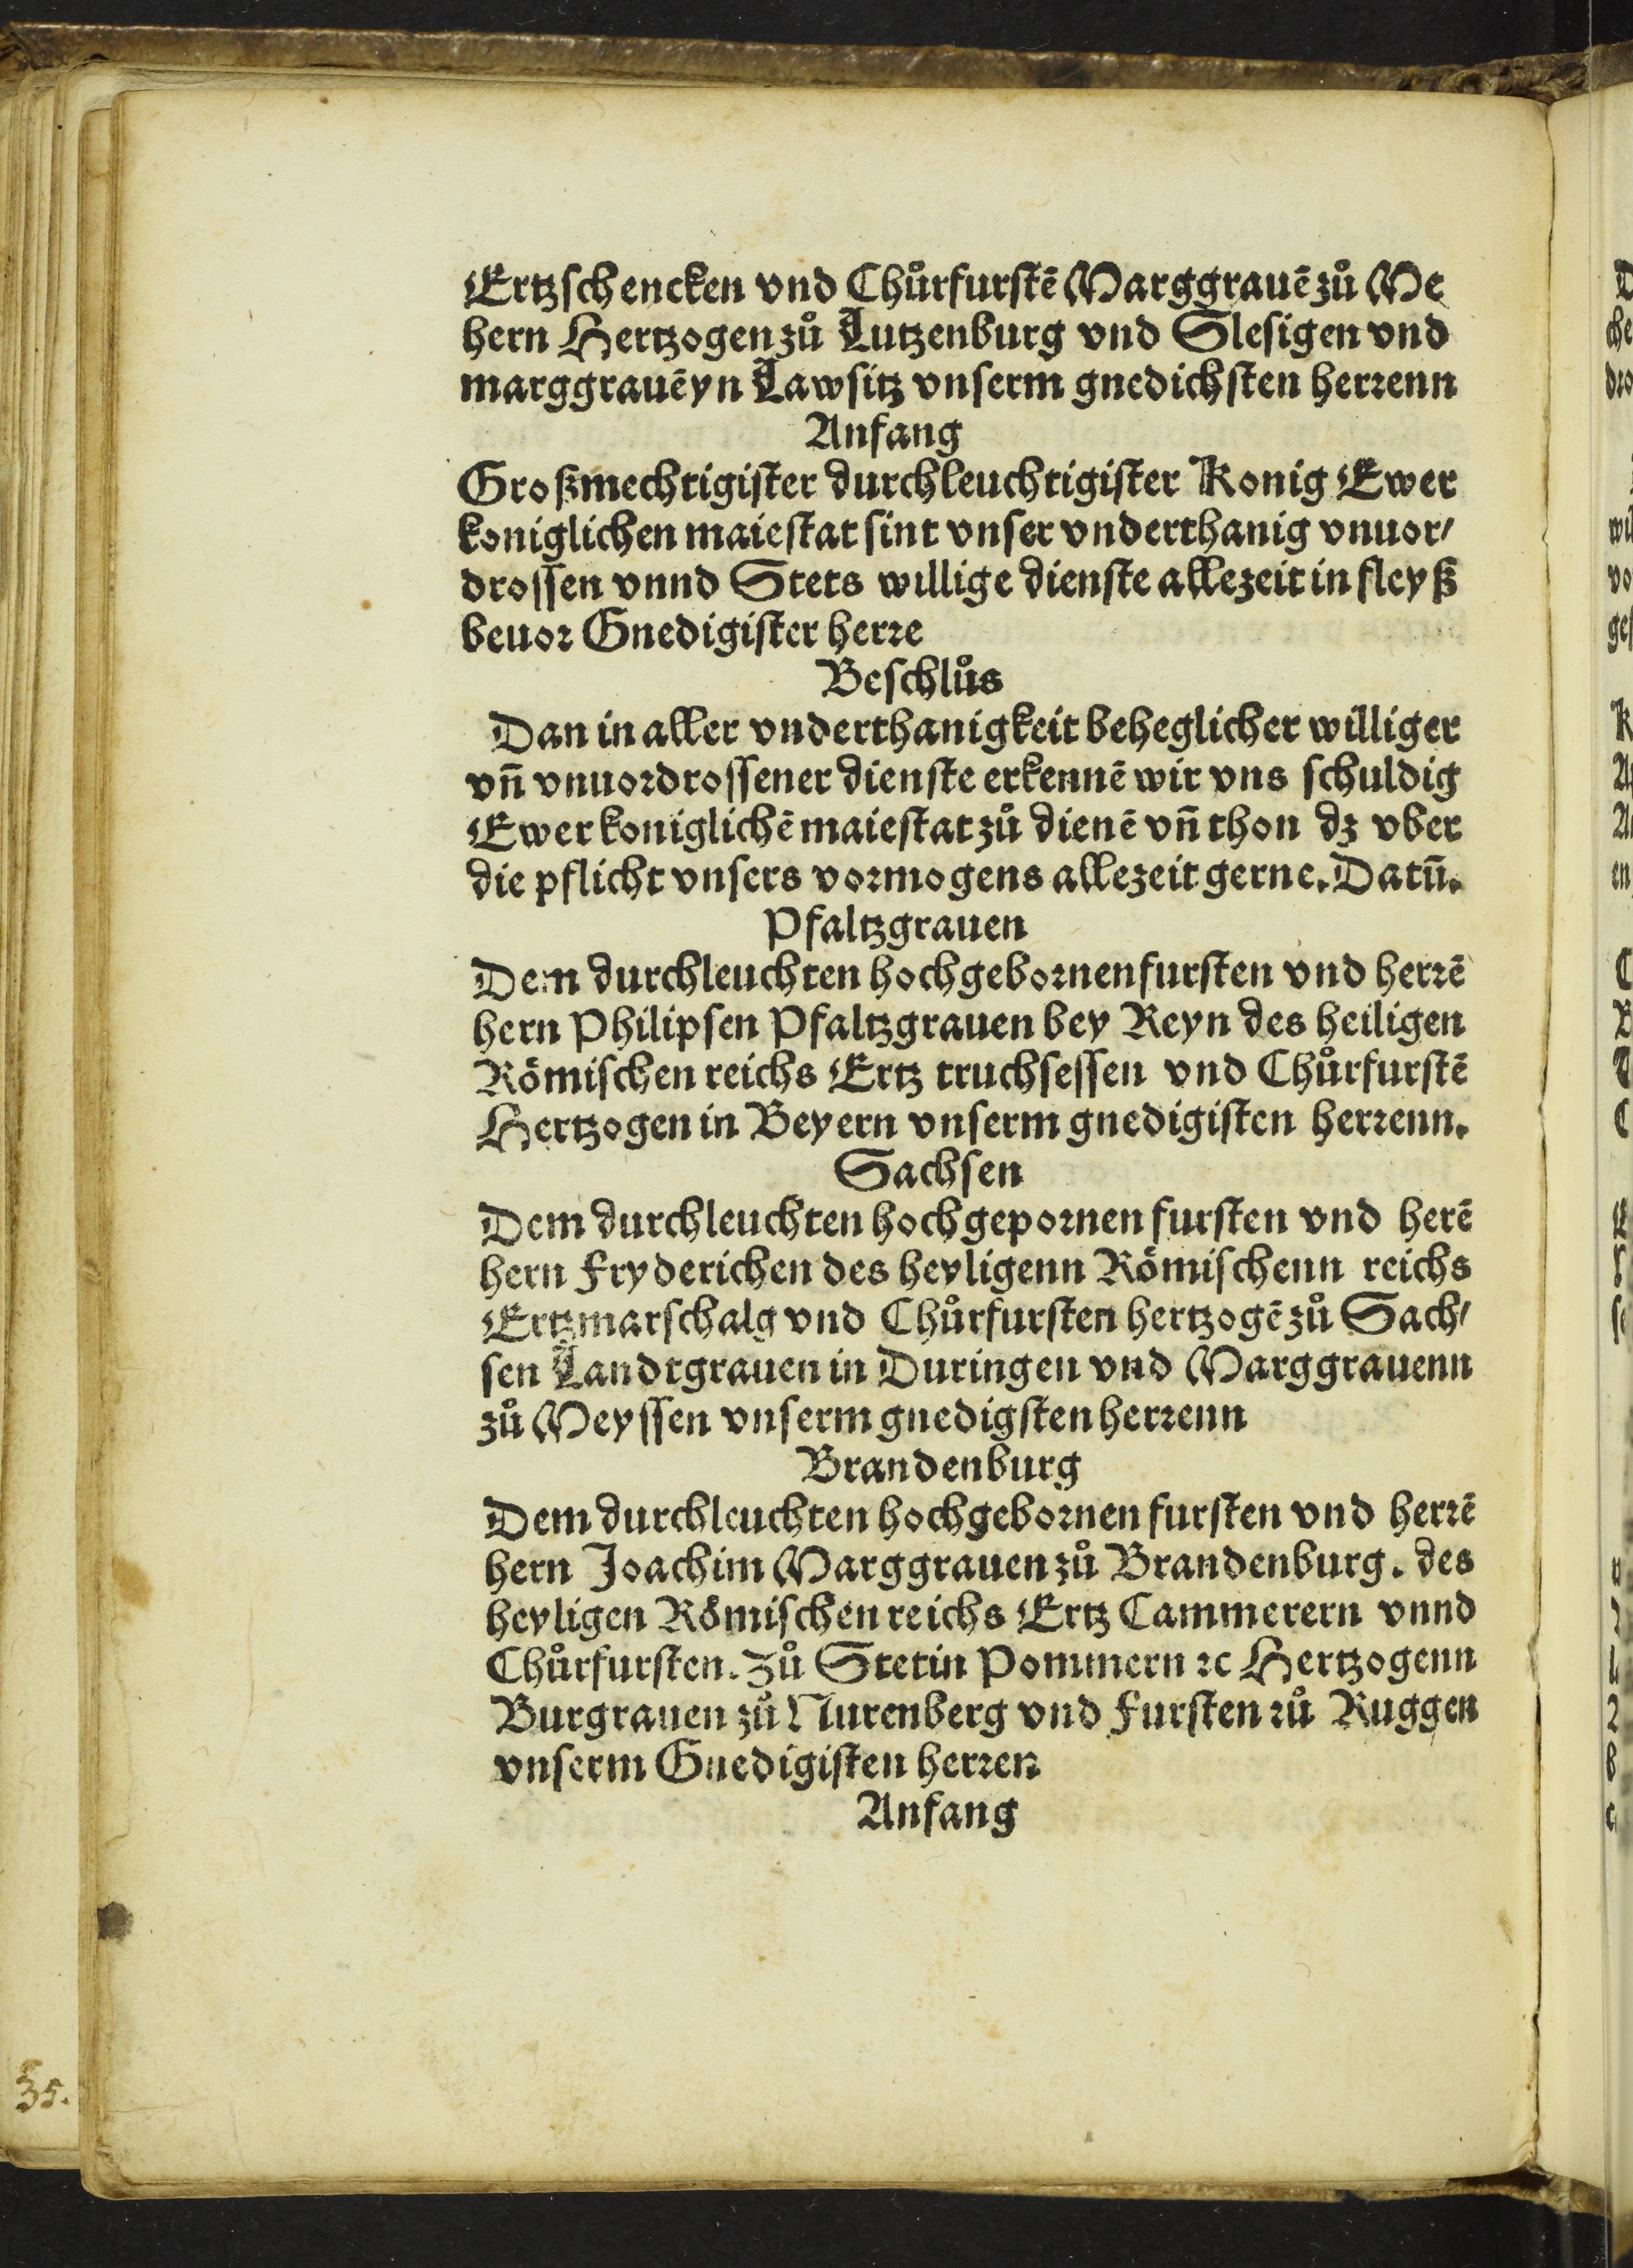 Ertzschencken vnd Chůrfurstē Marggrauē zů Me
hern Hertzogen zů Lutzenburg vnd Slesigen vnd
marggrauē yn Lawsitz vnserm gnedichsten herrenn
Anfang
Großmechtigister durchleuchtigister Konig Ewer
koniglichen maiestat sint vnser vnderthanig vnuor/
drossen vnnd Stets willige dienste allezeit in fleyß
beuor Gnedigister herre
Beschlůs
Dan in aller vnderthanigkeit beheglicher williger
vn̄ vnuordrossener dienste erkennē wir vns schuldig
Ewer koniglichē maiestat zů dienē vn̄ thon dz vber
die pflicht vnsers vormogens allezeit gerne. Datū.
Pfaltzgrauen
Dem durchleuchten hochgebornen fursten vnd herrē
hern Philipsen Pfaltzgrauen bey Reyn des heiligen
Römischen reichs Ertz truchsessen vnd Chůrfurstē
Hertzogen in Beyern vnserm gnedigisten herrenn.
Sachsen
Dem durchleuchten hochgepornen fursten vnd herē
hern Fryderichen des heyligenn Römischenn reichs
Ertzmarschalg vnd Chůrfursten hertzogē zů Sach/
sen Landtgrauen in Duringen vnd Marggrauenn
zů Meyssen vnserm gnedigsten herrenn
Brandenburg
Dem durchleuchten hochgebornen fursten vnd herrē
hern Joachim Marggrauen zů Brandenburg. des
heyligen Römischen reichs Ertz Cammerern vnnd
Chůrfursten. Zů Stetin Pommern ⁊c Hertzogenn
Burgrauen zů Nurenberg vnd Fursten zů Ruggen
vnserm Gnedigisten herren
Anfang
35.